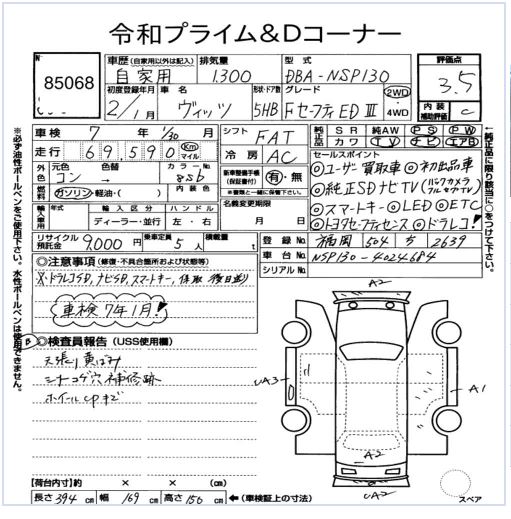 令和プライム&Dコーナー
No.
85068
車歴 (自家用以外は記入)
自家用
排気量
1.300
型式
DBA-NSP130
初度登録年月
2/1月
車名
ヴィッツ
形状・ドア数
5HB
グレード
FセーフティED III
2WD
・
4WD
評価点
3.5
内装
補助評価
C
車検 7年 1/30月
走行 69,590 Km マイル
シフト FAT
冷房 AC
純正品 SR 純AW PS PW
装品 カワ TV ナビ エアB
外元色 コン
色替
カラーNo. 8SB
燃料 ガソリン・軽油・( )
内装色
新車整備手帳(保証書付) 有・無
※書類と一緒に保管。
名義変更期限
月 日
輸入車用 年式 輸入区分 ハンドル
ディーラー・並行 左・右
セールスポイント
◎ユーザー買取車 ◎初出品車
◎純正SDナビTV(バックカメラ フルセグTV)
◎スマートキー ◎LED ◎ETC
◎トヨタセーフティセンス ◎ドラレコ!
リサイクル預託金 9,000円
乗車定員 5人
積載量 t
登録No. 福岡 504 ち 2639
車台No. NSP130-4024684
シリアルNo.
◎注意事項 (修復・不具合箇所および状態等)
※ドラレコSD、ナビSD、スマートキー、保取 後日送り
車検 7年1月!
◎検査員報告 (USS使用欄)
天張り黄ばみ
シートコゲ穴補修跡
ホイールcpキズ
A2
UA3
A1
A2
UA2
スペア
(荷台内寸) × × cm
長さ 394 cm 幅 169 cm 高さ 150 cm ←(車検証上の寸法)
※必ず油性ボールペンをご使用下さい。水性ボールペンは使用できません。
←純正品に限り該当に○をつけて下さい。